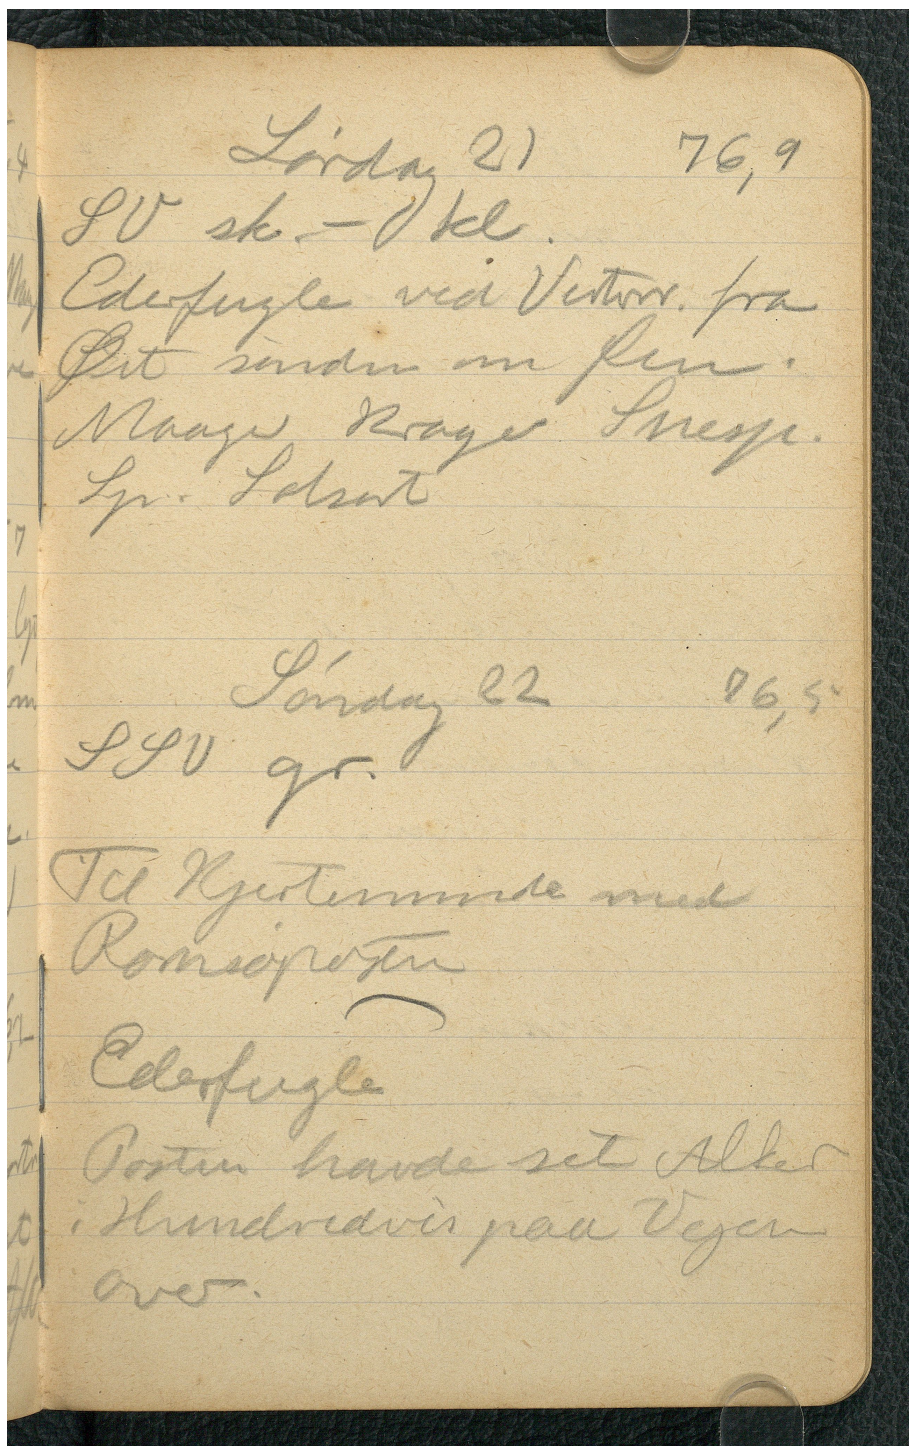 Lørdag 21 76,9
SV sk. – kl.
Ederfugle ved Vestorr. fra
Øst sønden om Øen.
Maager Krager Snesp.
Sp. Solsort
Søndag 22 76,5
SSV gr.
Til Kjerteminde med
Romsøposten
Ederfugle
Posten havde set Alker
i Hundredvis paa Vejen
over.